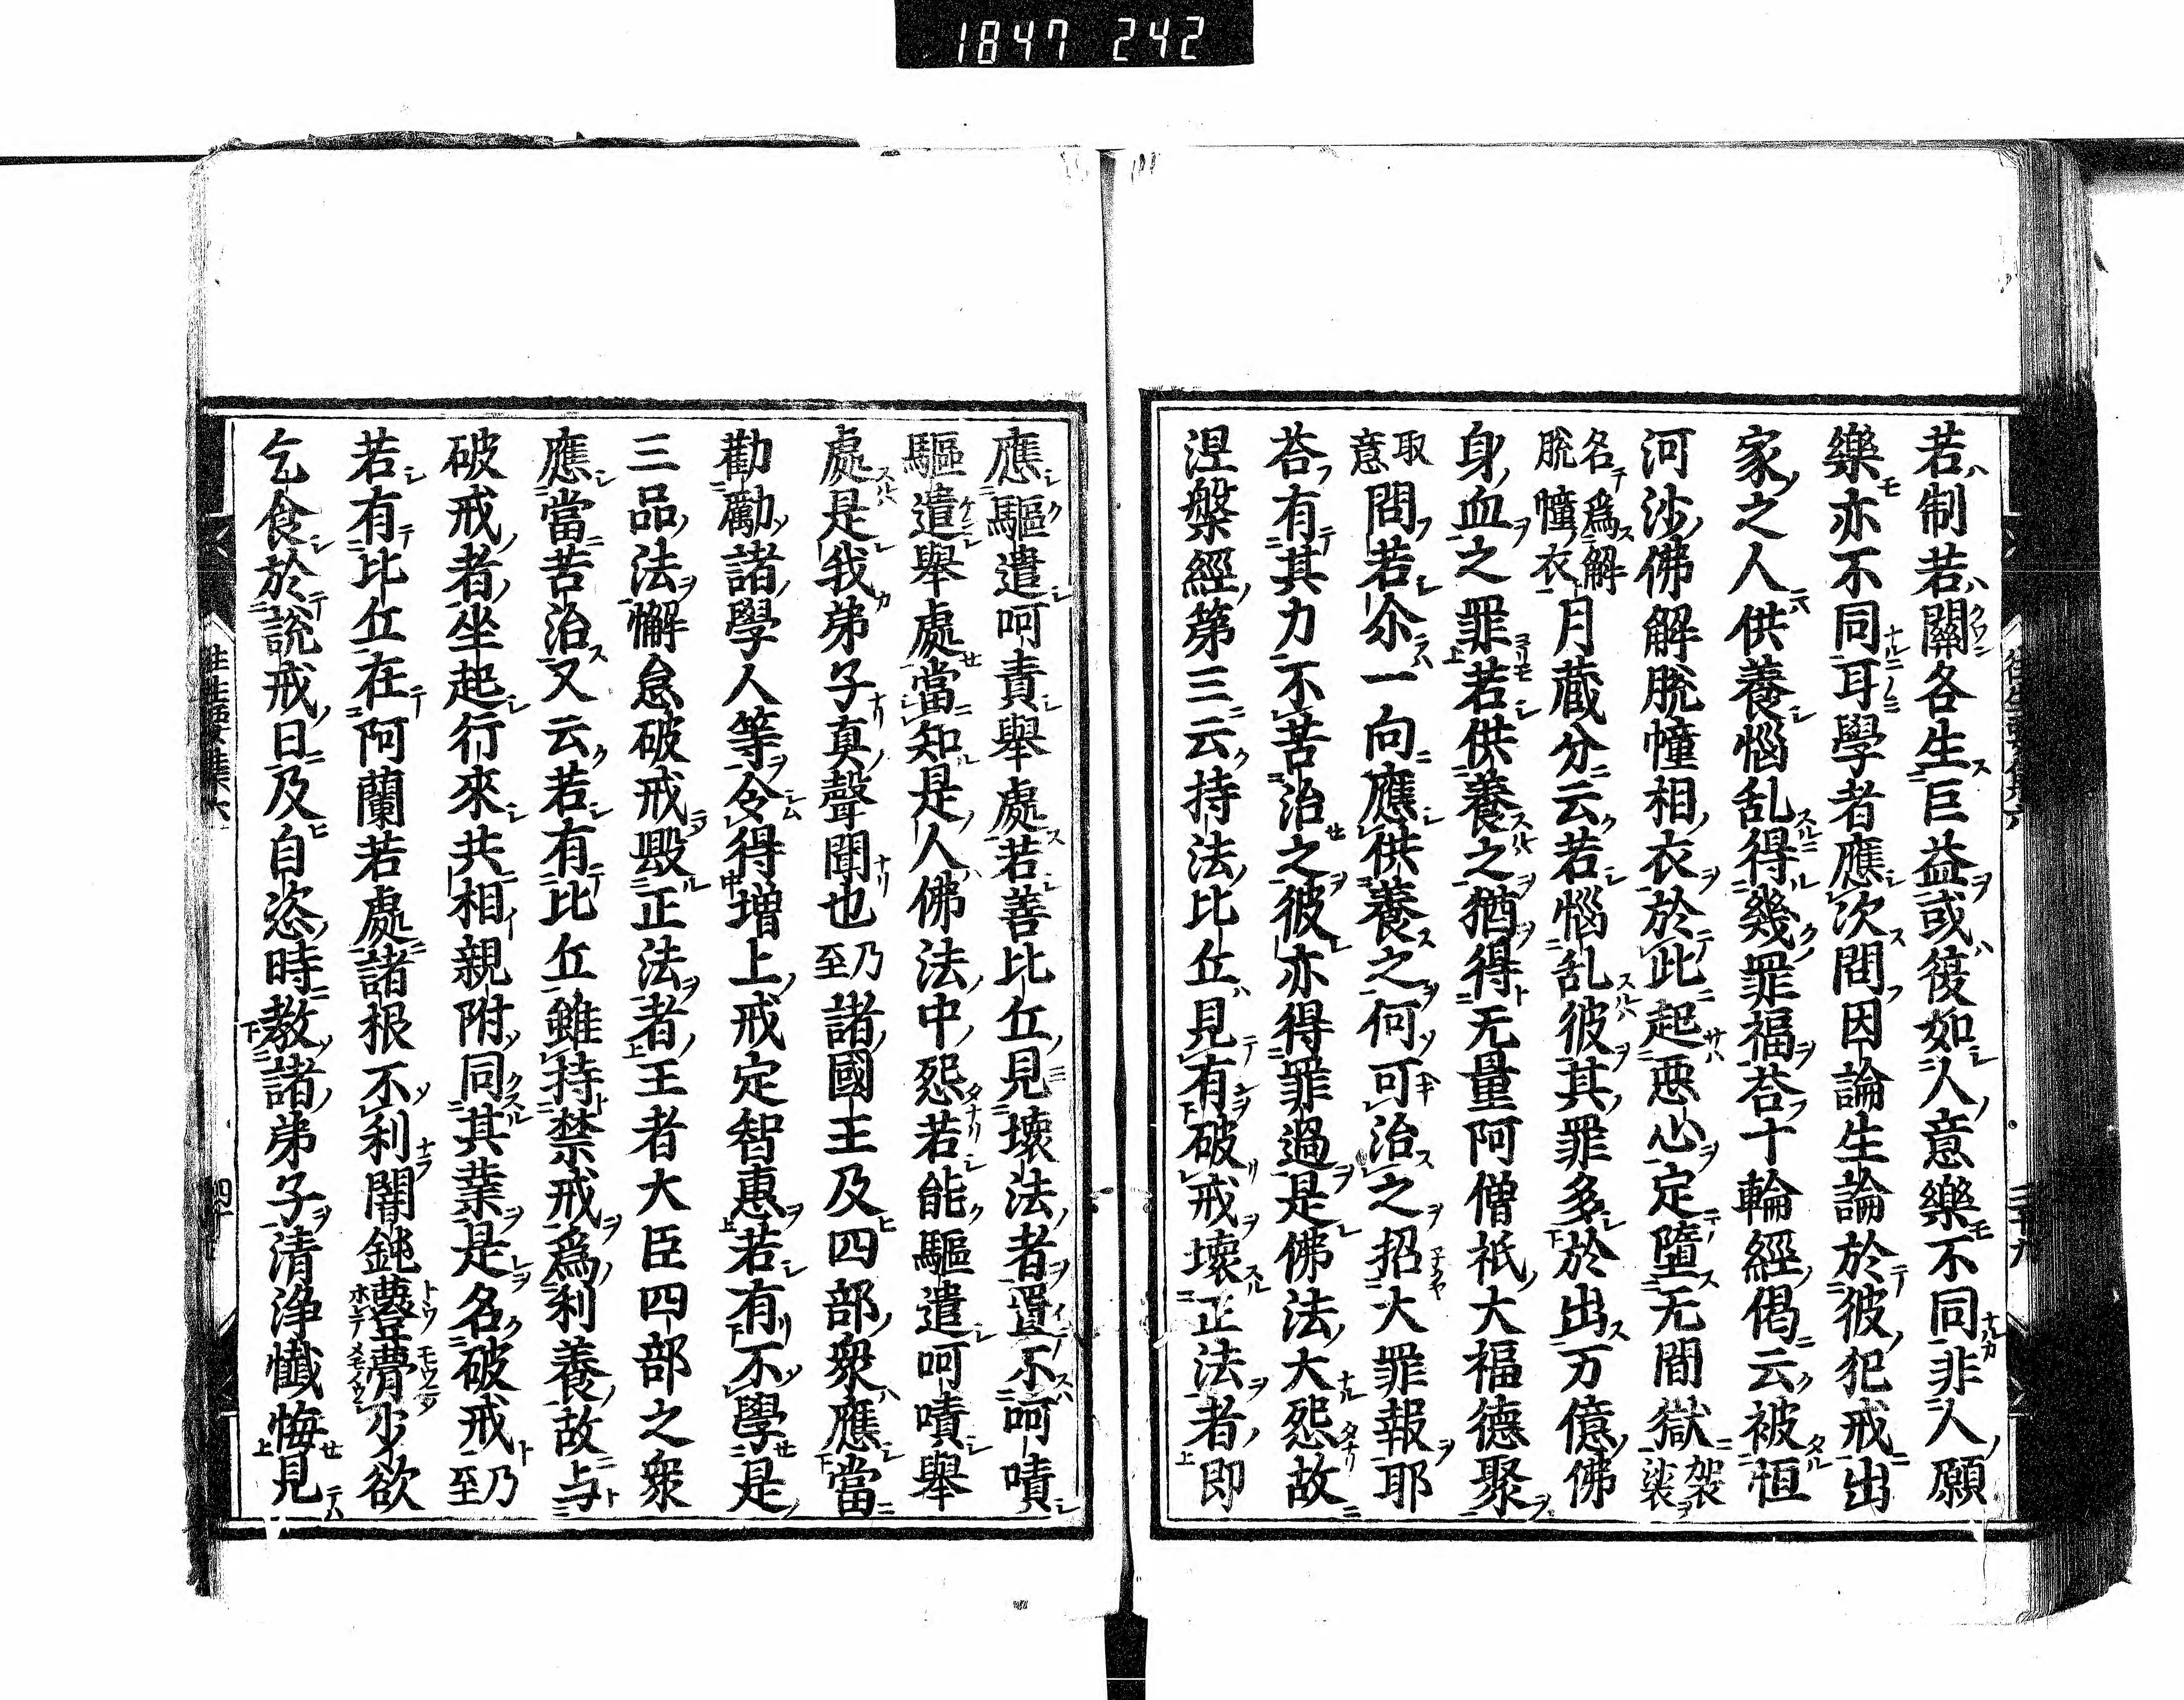 1847 242
若制若關各生巨益或復如人意樂不同非人願
樂亦不同耳學者應次問因論生論於彼犯戒出
家之人供養惱乱得幾罪福荅十輪經偈云被恒
河沙佛解脫幢相衣於此起惡心定墮无間獄袈裟
名爲解脫幢衣月藏分云若惱乱彼其罪多於出万億佛
身血之罪若供養之猶得无量阿僧祇大福德聚
取意問若尒一向應供養之何可治之招大罪報耶
荅有其力不苦治之彼亦得罪過是佛法大怨故
涅槃經第三云持法比丘見有破戒壞正法者即
應驅遣呵責舉處若善比丘見壞法者置不呵嘖
驅遣舉處當知是人佛法中怨若能驅遣呵嘖舉
處是我弟子真聲聞也乃至諸國王及四部衆應當
勸勵諸學人等令得增上戒定智惠若有不學是
三品法懈怠破戒毀正法者王者大臣四部之衆
應當苦治又云若有比丘雖持禁戒爲利養故与
破戒者坐起行來共相親附同其業是名破戒乃至
若有比丘在阿蘭若處諸根不利闇鈍䔲瞢少欲
乞食於說戒日及自恣時教諸弟子清淨懺悔見